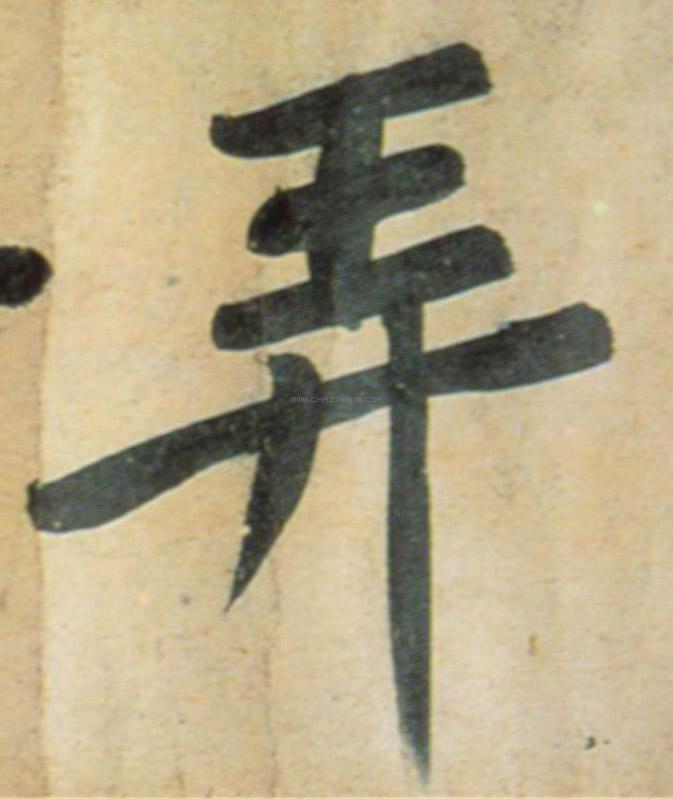 弄
WWW.CHAZIWANG.COM